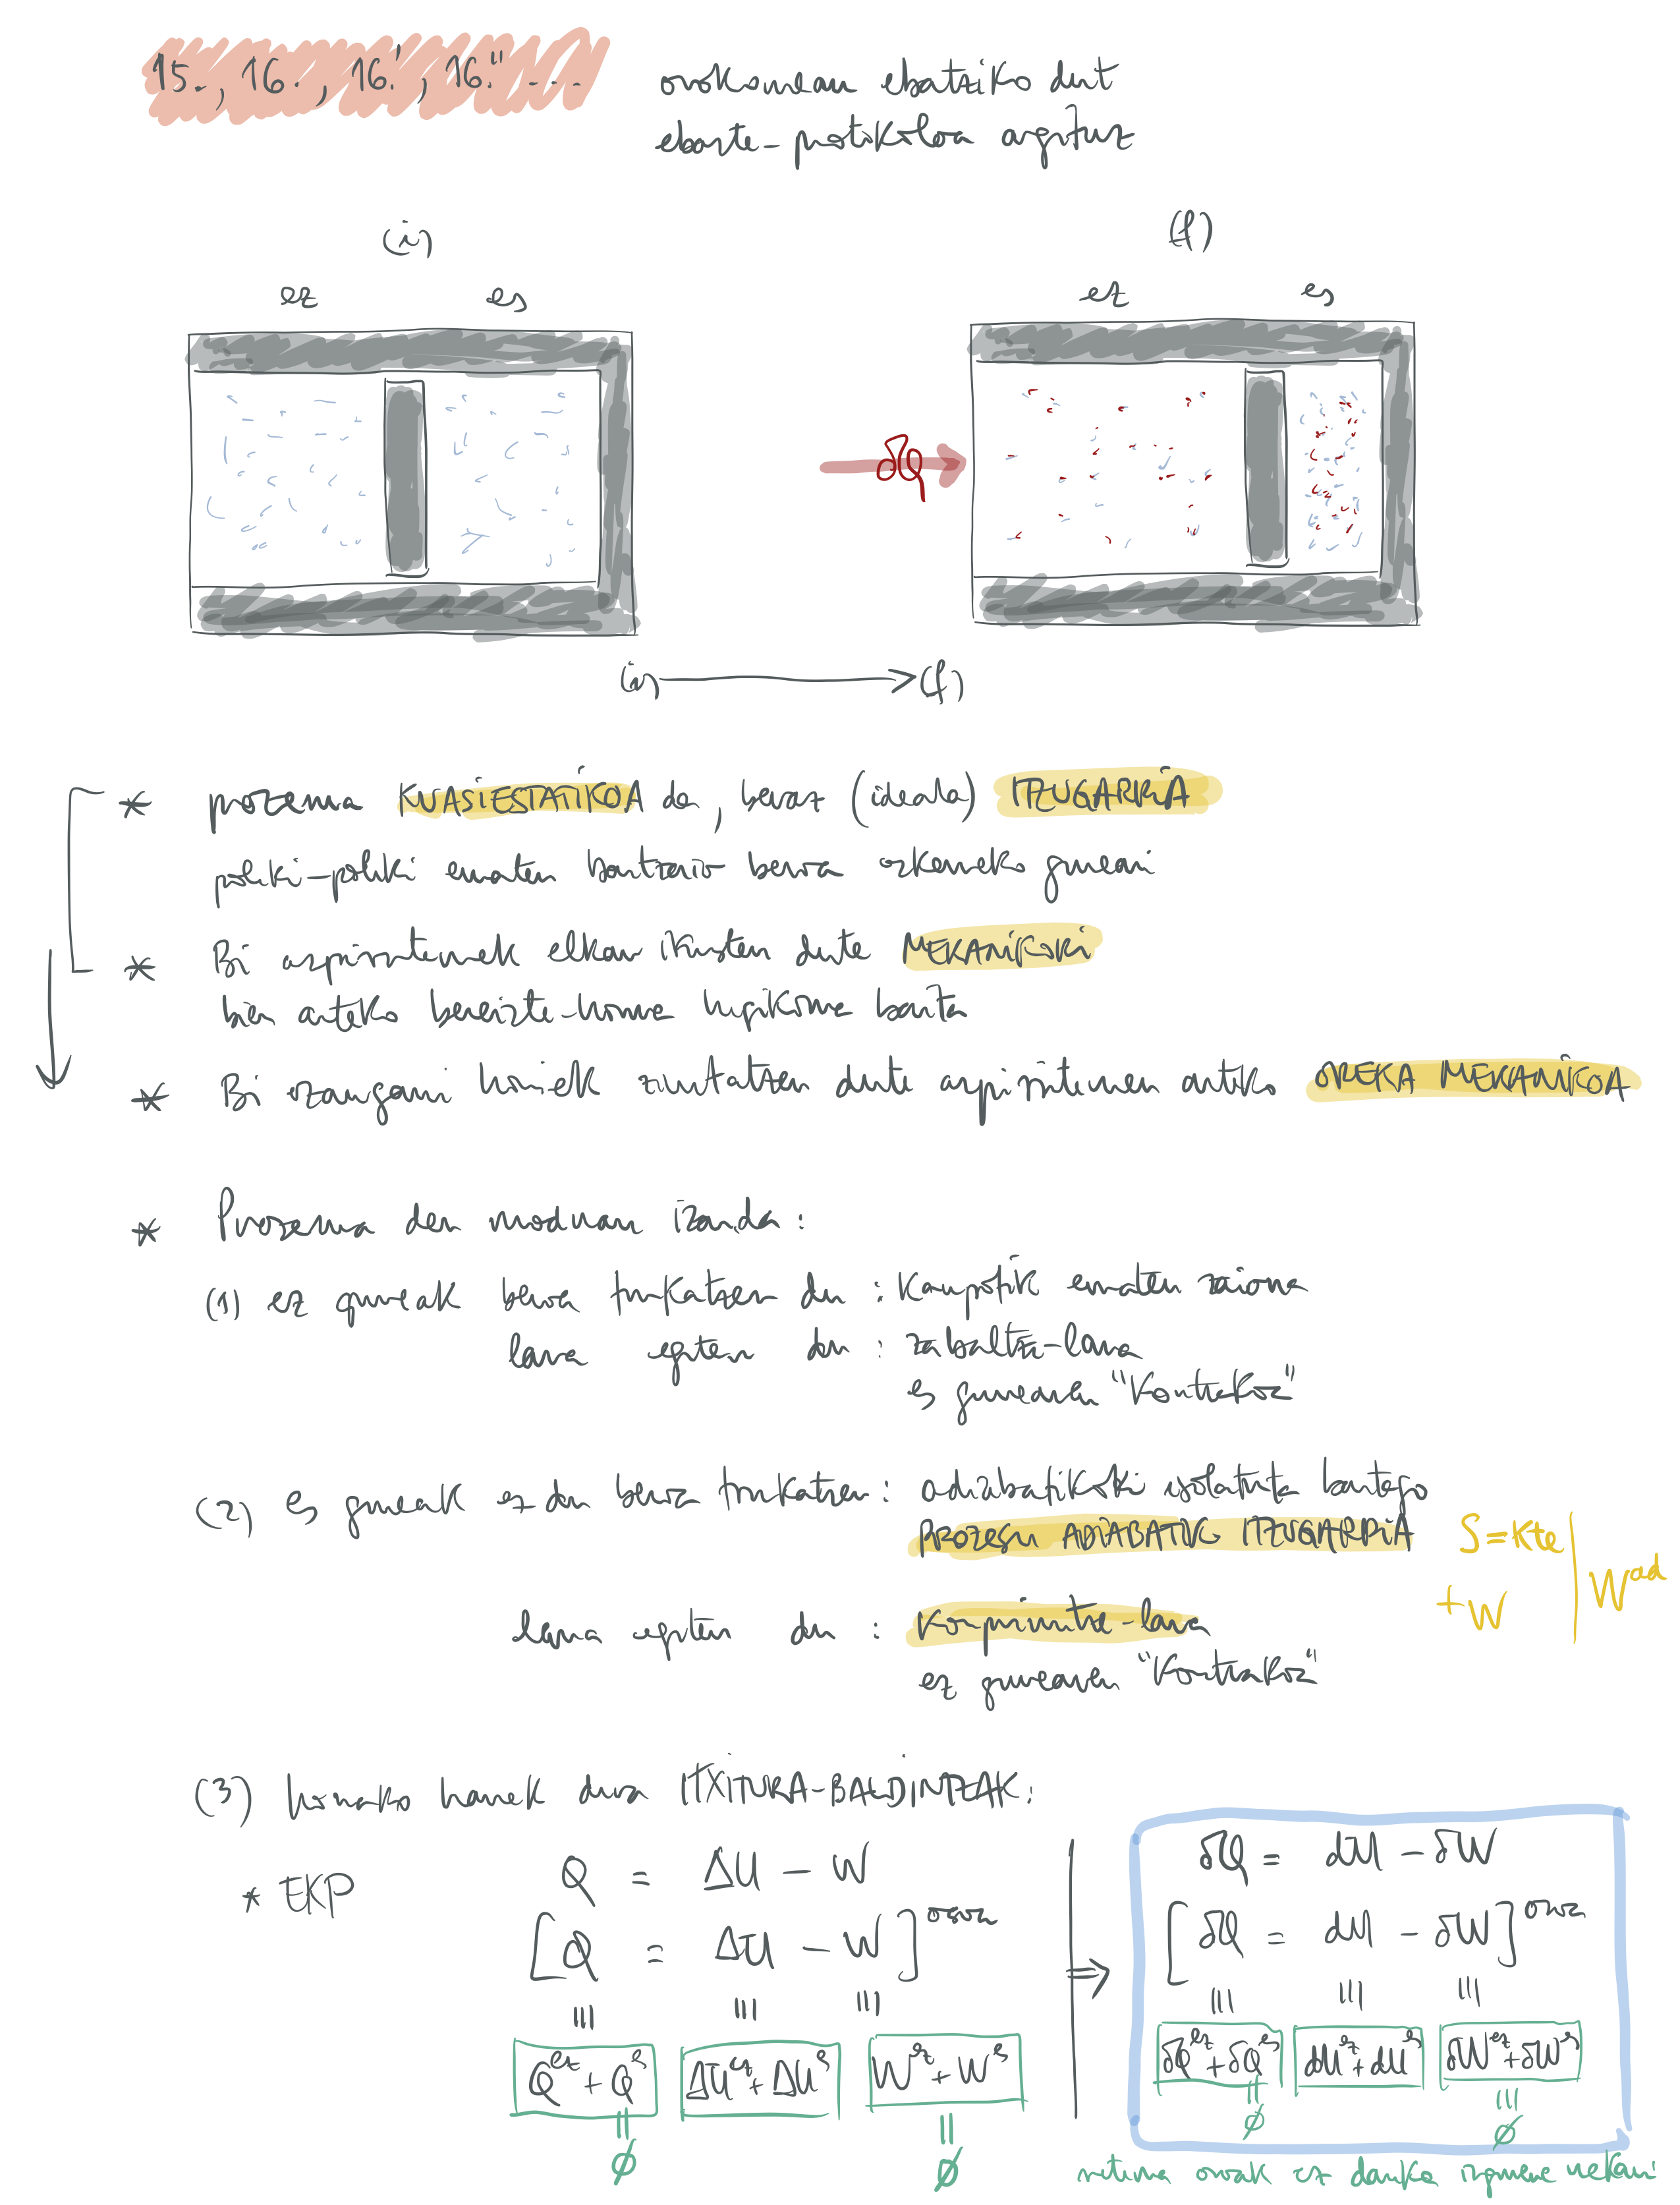 15., 16., 16.', 16." ... orokorrean ebatziko dut
ebazte-protokoloa argituz
(i) (f)
ez es ez es
δQ
(i) → (f)
* prozesua KUASIESTATIKOA da, beraz (ideala) ITZUGARRIA
poliki-poliki ematen baitzaio beroa ezkerreko gneari
* Bi azpisistemek elkar ikusten dute MEKANIKOKI
bien arteko bereizte-horma higikorra baita
* Bi ezaugarri horiek ziurtatzen dute azpisistemen arteko OREKA MEKANIKOA
* Prozesua den moduan izanda:
(1) ez guneak beroa trukatzen du : kanpotik ematen zaiona
lana egiten du : zabaltze-lana
es gunearen "kontrakoz"
(2) es guneak ez du beroa trukatzen : adiabatikoki isolatuta baitago
PROZESU ADIABATIKO ITZUGARRIA S = kte
+W W^ad
lana egiten du : konprimitze-lana
ez gunearen "kontrakoz"
(3) honako hauek dira ITXITURA-BALDINTZAK:
* EKP Q = ΔU - W
[Q = ΔU - W]^osoa
≡ ≡ ≡
Q^ez + Q^es ΔU^ez + ΔU^es W^ez + W^es
= =
∅ ∅
⇒ δQ = dU - δW
[δQ = dU - δW]^osoa
≡ ≡ ≡
δQ^ez + δQ^es dU^ez + dU^es δW^ez + δW^es
= ≡
∅ ∅
sistema osoak ez dauka izpurua mekani